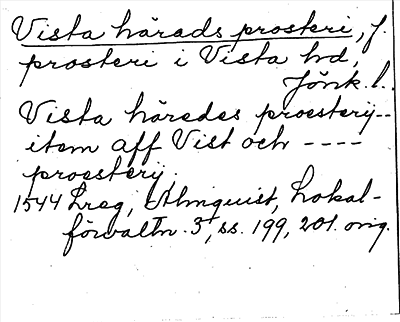 Vista härads prosteri, f.
prosteri i Vista hd,
Jönk. l.
Vista häredes proesterij--
item aff Vist och ----
proesterij.
1544 Lreg, Almquist, Lokal-
förvaltn. 3, ss. 199, 201. orig.